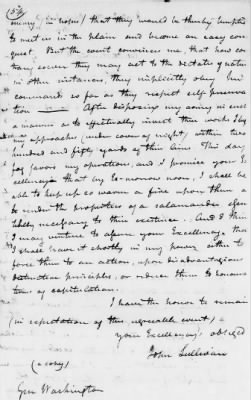 (56)
enemy, in hopes that they would be thereby tempted
to meet us in the plain and become an easy con
quest. But the event convinces me, that how con
trary soever they may act to the dictates of nature
in other instances, they implicitly obey her
commands so far as they respect self preserva
tion — After disposing my army in such
a manner as to effectually invest their works I by
my approaches (under cover of night) within two
hundred and fifty yards of their lines. This day
fog favors my operations, and I promise your Ex
cellency that by tomorrow noon, I shall be
able to keep up so warm a fire upon them as
to render the properties of a salamander essen
tially necessary to their existence. And I think
I may venture to assure your Excellency, that
I shall have it shortly in my power either to
force them to an action, upon disadvantageous
principles, or reduce them to honora
terms of capitulation.
I have the honor to remain
(in expectation of this agreeable event)
your Excellency's obliged
John Sullivan
(a copy)
Gen Washington